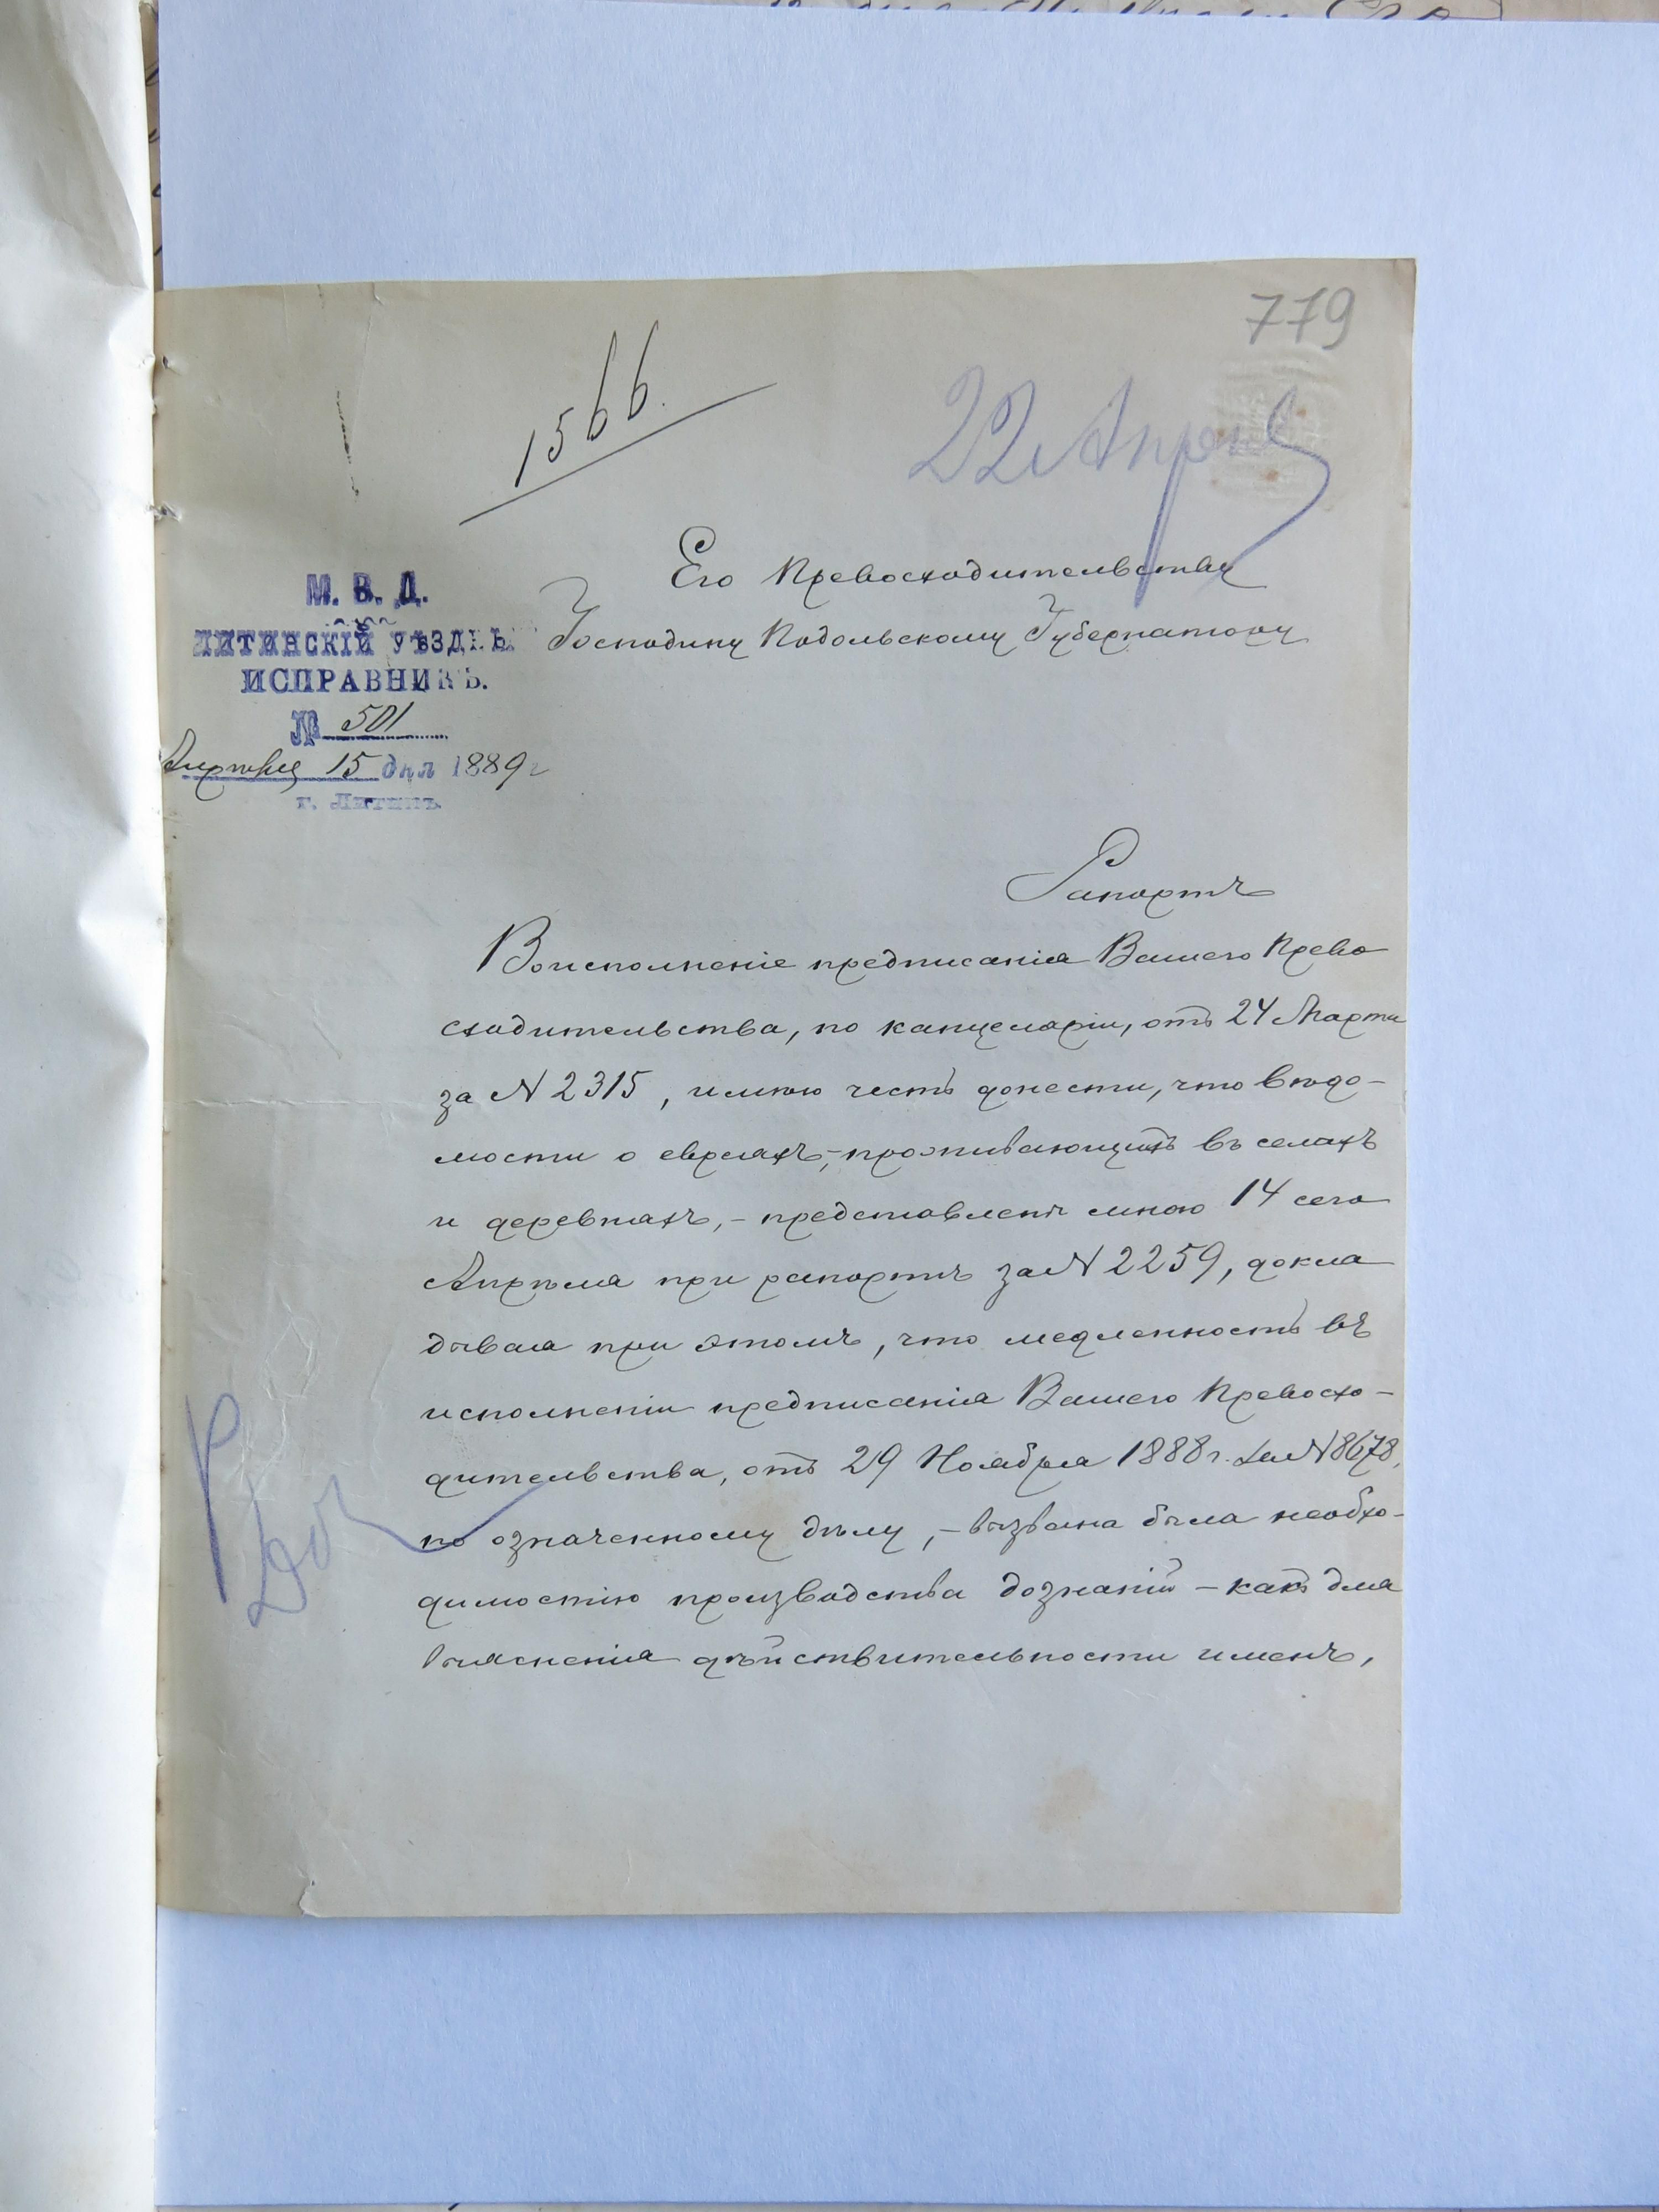 779
1566.
22 Апрѣл
Его Превосходительству
Господину Подольскому Губернатору
М. В. Д.
ЛИТИНСКІЙ УѢЗДН.
ИСПРАВНИКЪ.
№ 501
Апрѣля 15 дня 1889 г
г. Литинъ.
Рапортъ
Во исполненіе предписанія Вашего Прево
сходительства, по канцеляріи, отъ 24 Марта
за N 2315, имѣю честь донести, что вѣдо-
мости о евреяхъ,-проживающихъ въ селахъ
и деревняхъ,- представлены мною 14 сего
Апрѣля при рапортѣ за N 2259, докла
дывая при этомъ, что медленность въ
исполненіи предписанія Вашего Превосхо-
дительства, отъ 29 Ноября 1888 г. за N 8678,
по означенному дѣлу,- вызвана была необхо-
димостію производства дознаній - какъ для
выясненія дѣйствительности именъ,